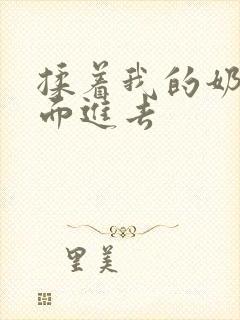 揉着我的奶
而進去
里美